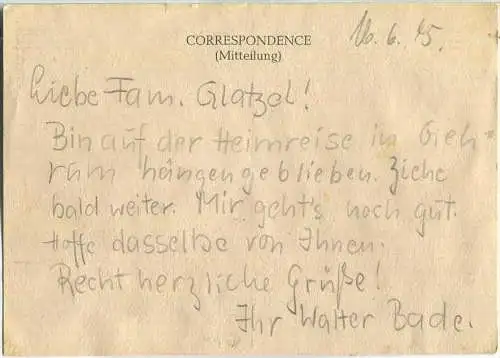 CORRESPONDENCE
(Mitteilung)
16. 6. 45.
Liebe Fam. Glatzel!
Bin auf der Heimreise in Geh-
ram hängengeblieben. Ziehe
bald weiter. Mir geht's noch gut.
Hoffe dasselbe von Ihnen.
Recht herzliche Grüße!
Ihr Walter Bade.